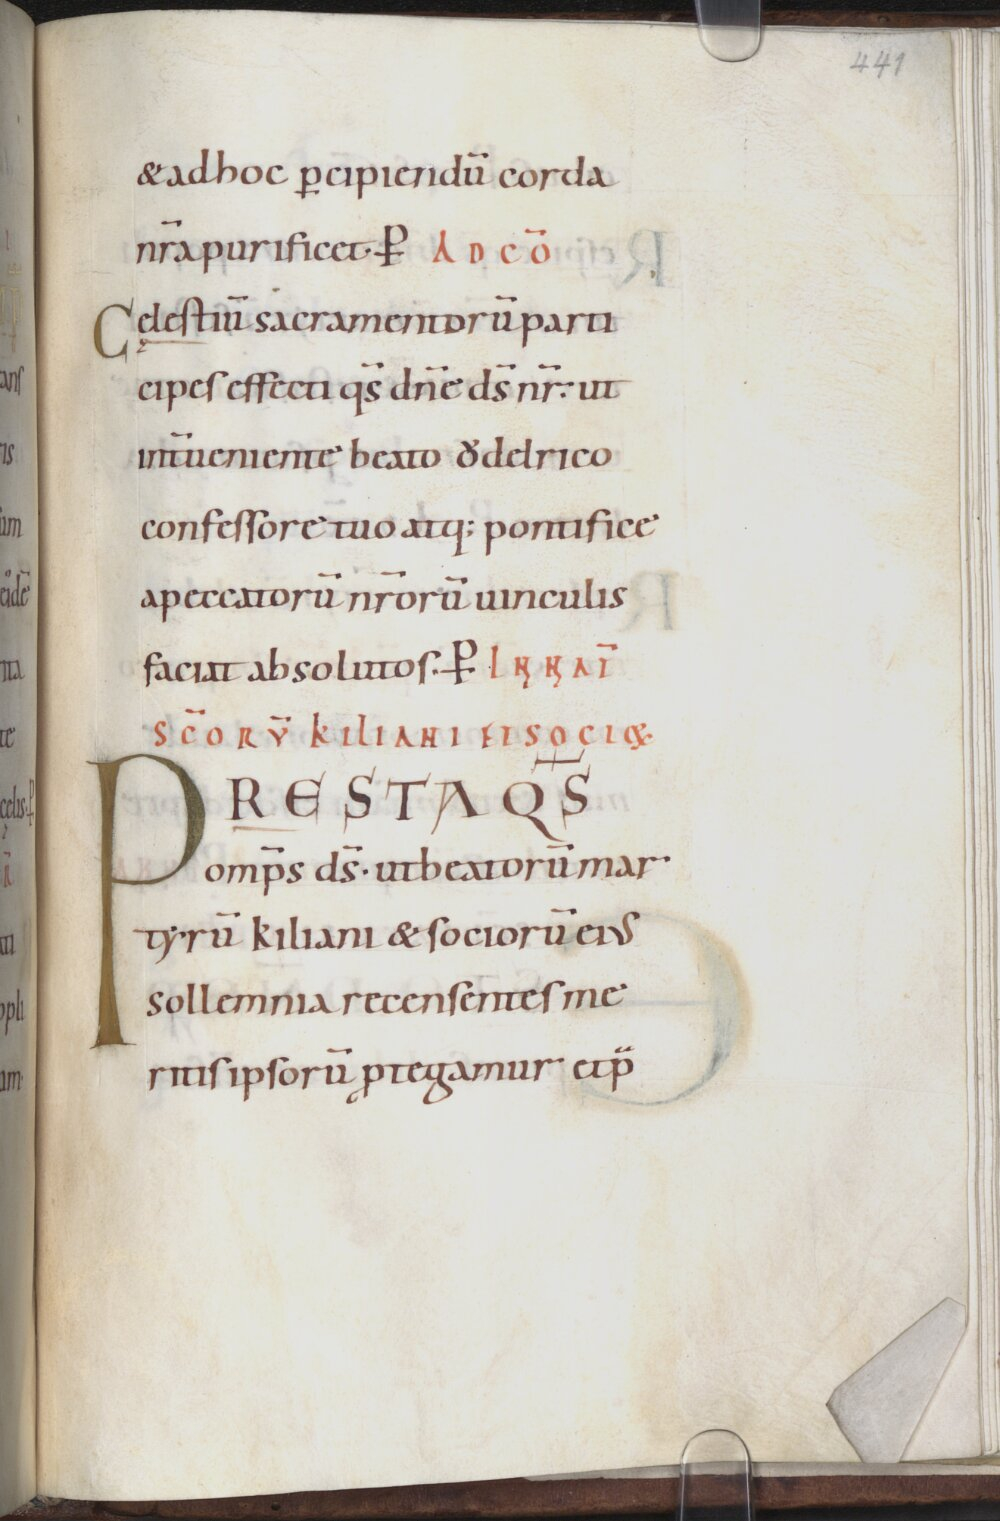 441
&adhoc p̱cipiendū corda
nr̄a purificet· ꝑ AD CŌ
Cęlestiū sacramentorū parti
cipes effecti qs̄ dn̄e ds̄ nr̄: ut
int̄ueniente beato Ȣdelrico
confessore tuo atq; pontifice
a peccatorū nr̄orū uinculis
faciat absolutos· ꝑ IN NAT̄
SC̄ORV̄ KILIANI ET SOCIO
PRESTA QS̄
omp̄s ds̄· ut beatorū mar
tyrū kiliani & sociorū eius
sollemnia recensentes me
ritis ipsorū ꝓtegamur et p̄